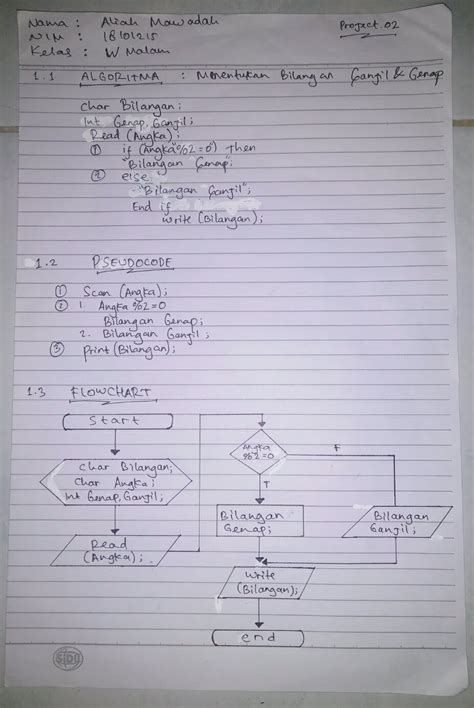 Nama : Aliah Mawadah
NIM : 18101215
Kelas : W Malam
Project .02
1.1 ALGORITMA : Menentukan Bilangan Ganjil & Genap
char Bilangan;
Int Genap, Ganjil;
Read (Angka);
① if (Angka%2=0) then
"Bilangan Genap";
② else
"Bilangan Ganjil";
End if
write (Bilangan);
1.2 PSEUDOCODE
① Scan (Angka);
② 1. Angka %2=0
Bilangan Genap;
2. Bilangan Ganjil;
③ print (Bilangan);
1.3 FLOWCHART
Start
char Bilangan;
Char Angka;
Int Genap, Ganjil;
Read
(Angka);
Angka
%2=0
F
T
Bilangan
Genap;
Bilangan
Ganjil;
Write
(Bilangan);
end
SIDU